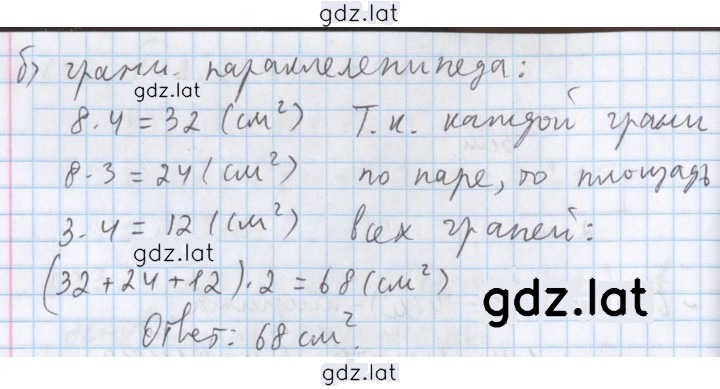 gdz.lat
б) грани параллелепипеда:
gdz.lat
8·4=32 (см²) Т.к. каждой грани
8·3=24 (см²) по паре, то площадь
3·4=12 (см²) всех граней:
gdz.lat
(32+24+12)·2=68 (см²)
gdz.lat
Ответ: 68 см².
gdz.lat